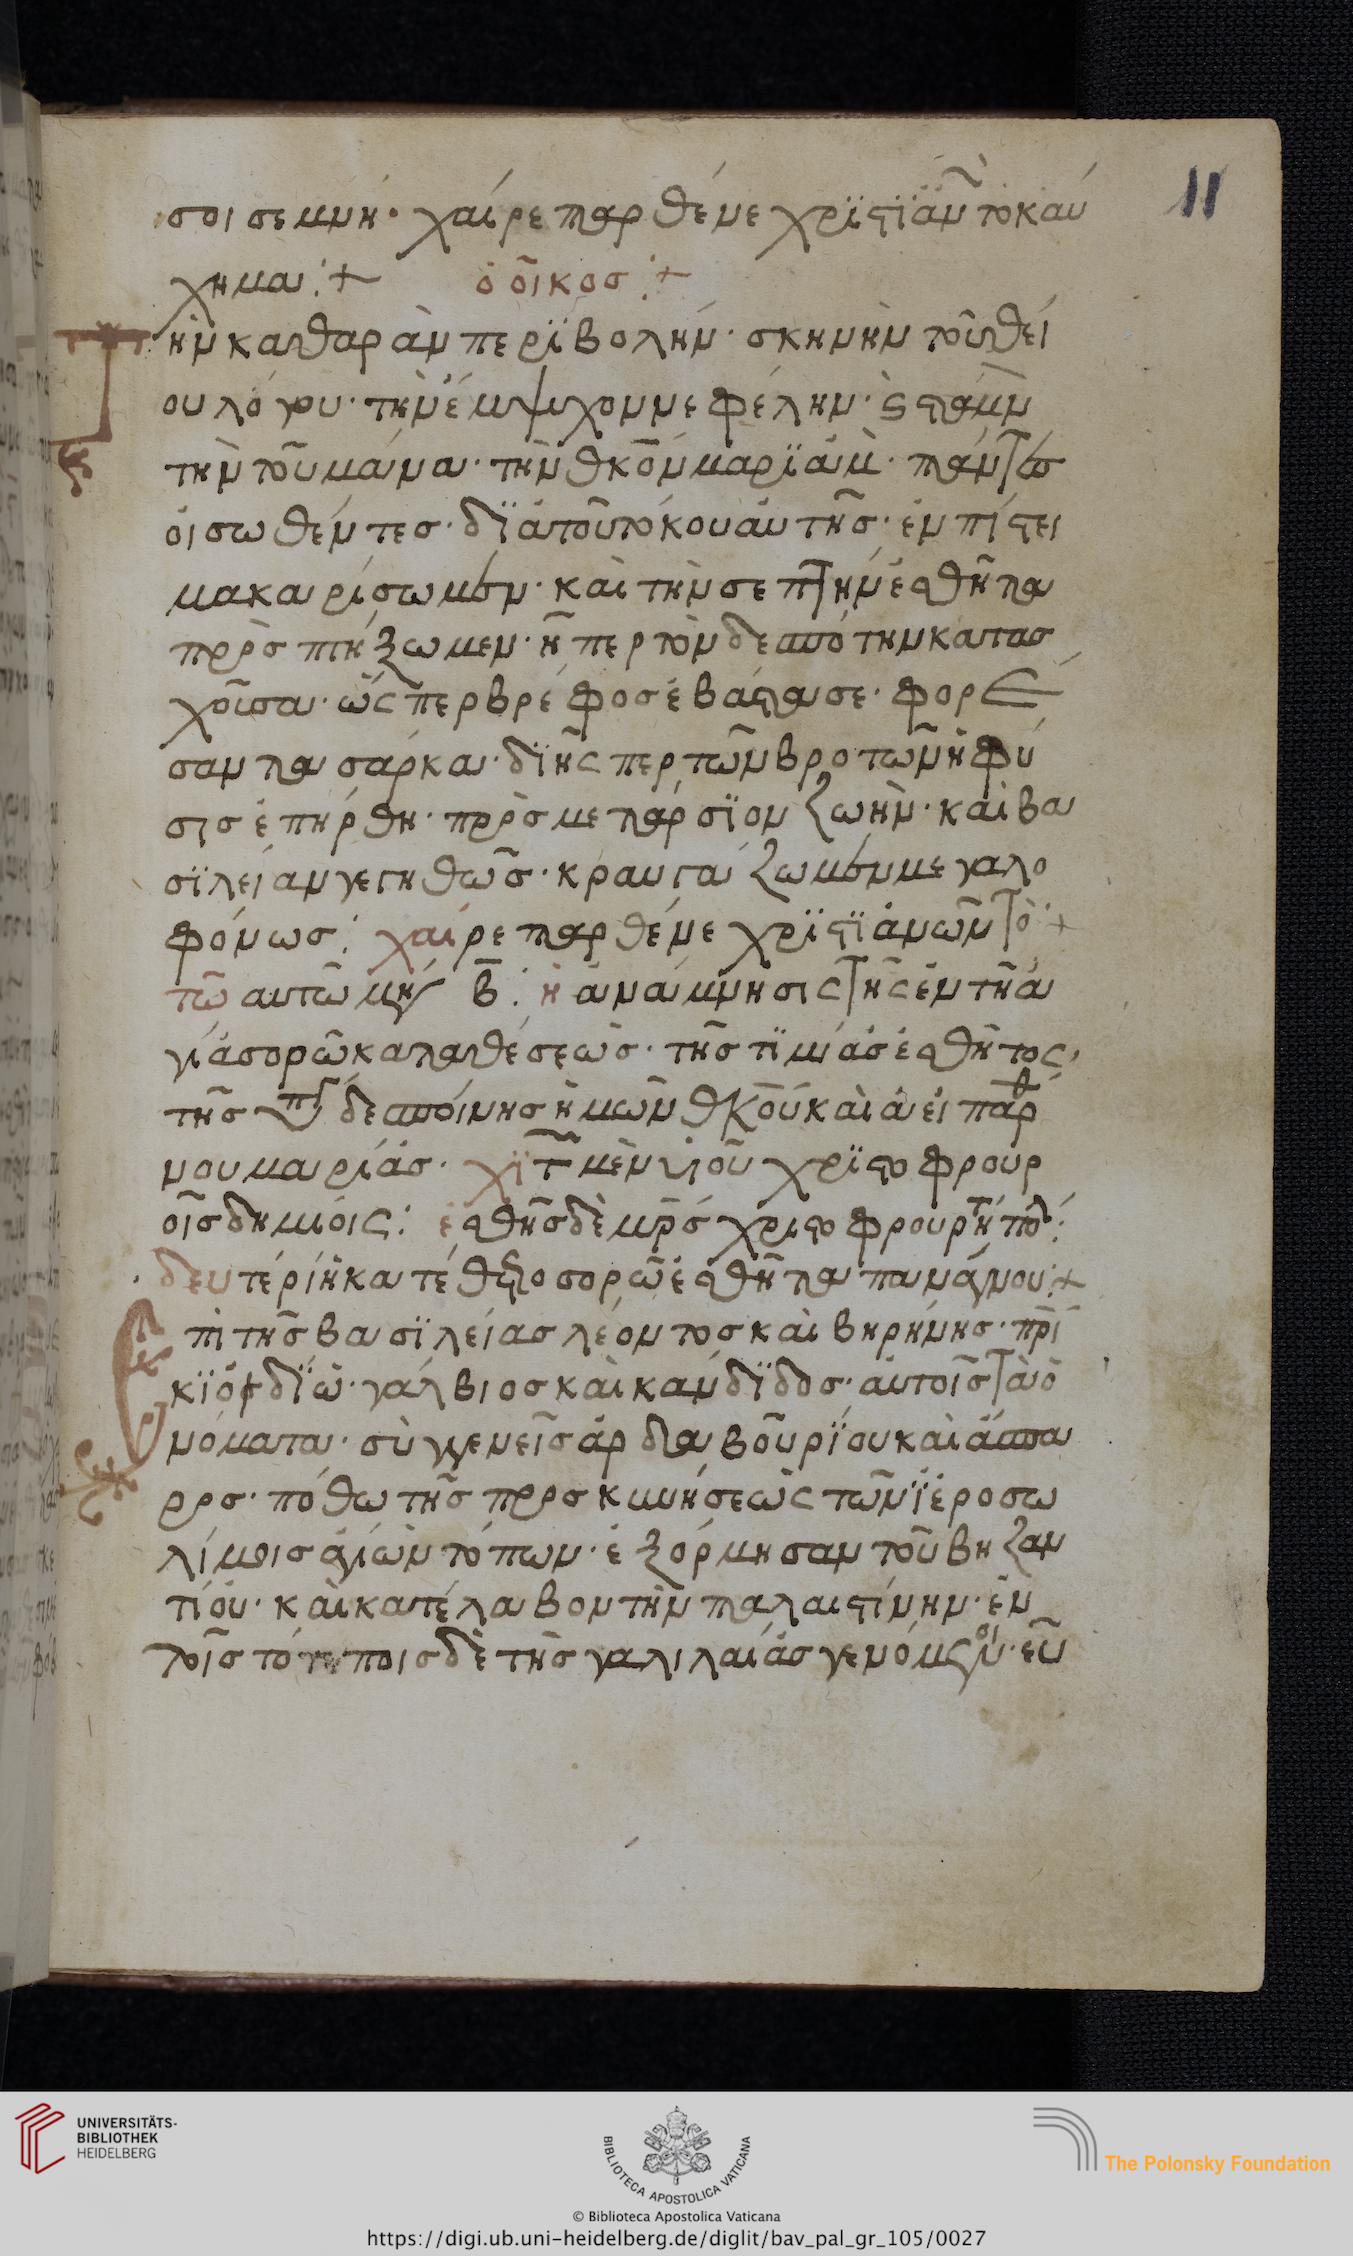 11
σοι σεμνή· χαίρε παρθένε χρϊστϊαν τὸ καύ
χημα:+ ὁ οἶκος:+
Τὴν καθαρὰν περϊβολήν· σκηνὴν τοῦ θεί
ου λόγου· τὴν ἔμψυχον νεφέλην· ς στάμν
τὴν τοῦ μάννα· τὴν θκον μαρϊάμ· πάντες
οἱ σωθέντες· δϊὰ τοῦ τόκου αὐτῆς· ἐν πίστει
μακαρίσωμεν· καὶ τὴν σεπτὴν ἐσθῆτα
προσπτήξωμεν· ἥπερ τὸν δεσπότην κατασ
χοῦσα· ὥσπερ βρέφος ἐβάστασε· φορέ
σαντα σάρκα· δϊ ἧς περ τῶν βροτῶν ἡ φύ
σις ἐπήρθη· πρὸς μετάρσϊον ζωὴν· καὶ βα
σϊλείαν γεγηθῶς· κραυγάζωμεν μεγαλο
φόνως: χαίρε παρθένε χρϊστϊάνων τὸ:+
τῶ αυτῶ μη β: ἡ ἀνάμνησις τῆς ἐν τῆ ἁ
γίὰ σορῶ καταθέσεως· τῆς τϊμίὰς ἐσθῆτος,
τῆς ὑπ δεσποίνης ἡμῶν θκοῦ καὶ ἀεὶ παρθ
νου μαρίὰς· χϊτ μὲν υἱοῦ χρϊστοφρουρ
οῖς δημίοις: ἐσθῆς δὲ μρς χριστοφρουρτη πολ:
δευτέρίη κατέθετο σορῶ ἐσθῆτα πανάγνου:+
Ἐπὶ τῆς βασϊλείας λέοντος καὶ βηρήνης· πρι
κϊοι δϊο· γάλβιος καὶ κάνδϊδος· αὐτοῖς τὰ ὀ
νόματα· συγγενεῖς ἀρδαβουρϊου καὶ ἄσπα
ρος· πόθω τῆς προσκυνήσεως τῶν ἱεροσω
λίμοις ἁγίων τόπων· ἐξόρμησαν τοῦ βηζαν
τίου· καὶ κατέλαβον τὴν παλαιστίνην· ἐν
τοῖς τόποις δὲ τῆς γαλιλαίὰς γενόμενοι· εὗ
UNIVERSITÄTS-
BIBLIOTHEK
HEIDELBERG
BIBLIOTECA APOSTOLICA VATICANA
The Polonsky Foundation
© Biblioteca Apostolica Vaticana
https://digi.ub.uni-heidelberg.de/diglit/bav_pal_gr_105/0027